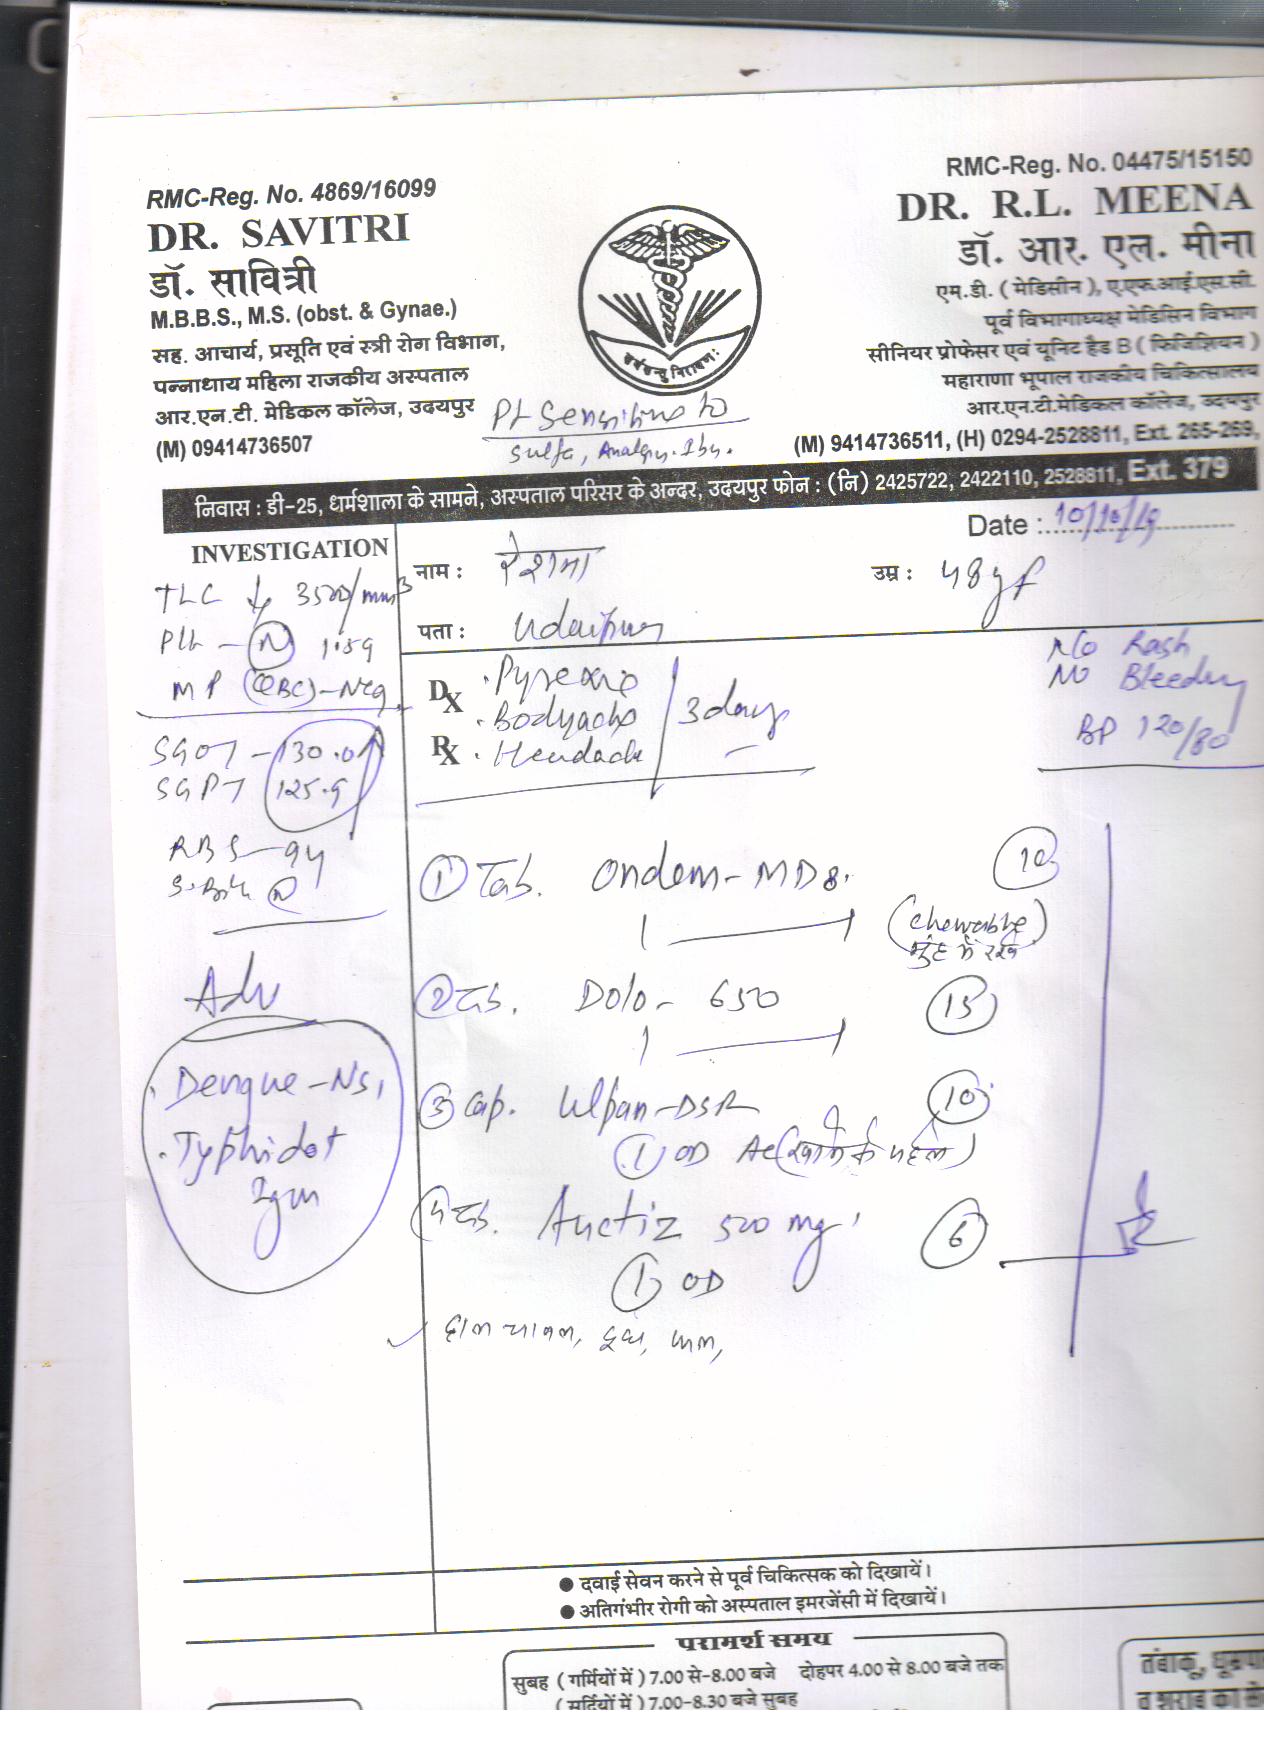 RMC-Reg. No. 4869/16099
DR. SAVITRI
डॉ. सावित्री
M.B.B.S., M.S. (obst. & Gynae.)
सह. आचार्य, प्रसूति एवं स्त्री रोग विभाग,
पन्नाधाय महिला राजकीय अस्पताल
आर.एन.टी. मेडिकल कॉलेज, उदयपुर
(M) 09414736507
RMC-Reg. No. 04475/15150
DR. R.L. MEENA
डॉ. आर. एल. मीना
एम.डी. ( मेडिसीन ), ए.एफ.आई.एस.सी.
पूर्व विभागाध्यक्ष मेडिसिन विभाग
सीनियर प्रोफेसर एवं यूनिट हैड B ( फिजिशियन )
महाराणा भूपाल राजकीय चिकित्सालय
आर.एन.टी.मेडिकल कॉलेज, उदयपुर
(M) 9414736511, (H) 0294-2528811, Ext. 265-269,
Pt Sensitive to
Sulfa, Analgin. Ibu.
निवास : डी-25, धर्मशाला के सामने, अस्पताल परिसर के अन्दर, उदयपुर फोन : (नि) 2425722, 2422110, 2528811, Ext. 379
Date : 10/10/19
नाम : रेशमा
उम्र : 48 y f
पता : Udaipur
INVESTIGATION
TLC ↓ 3500/mm3
Plt - (N) 1.59
MP (QBC) - Neg
SGOT - 130.0
SGPT 125.9
RBS - 94
Adv
Dengue - NS1
Typhidot
IgM
Dx · Pyrexia
· Bodyache
Rx · Headache
3 days
No Rash
No Bleeding
BP 120/80
1) Tab. Ondem - MD 8. 10
1 — 1 (chewable)
मुँह में रखे
2) Tab. Dolo - 650 15
1 — 1
3) Cap. Ulpan - DSR 10
1 OD AC (खाने के पहले)
4) Tab. Auctiz 500 mg 6
1 OD
दाल चावल, दूध, फल,
● दवाई सेवन करने से पूर्व चिकित्सक को दिखायें।
● अतिगंभीर रोगी को अस्पताल इमरजेंसी में दिखायें।
परामर्श समय
सुबह ( गर्मियों में ) 7.00 से-8.00 बजे दोहपर 4.00 से 8.00 बजे तक
( सर्दियों में ) 7.00-8.30 बजे सुबह
तंबाकू, धूम्रपा
व शराब का से